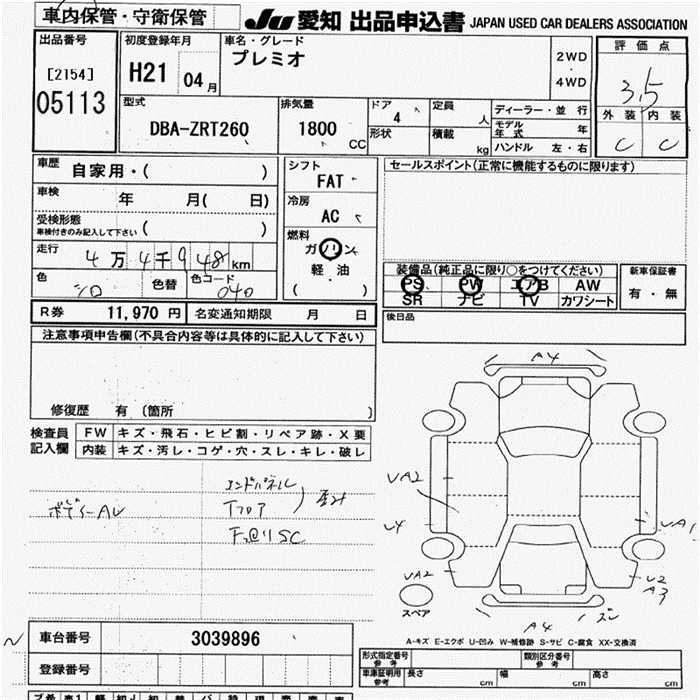 車内保管・守衛保管
JU 愛知 出品申込書 JAPAN USED CAR DEALERS ASSOCIATION
出品番号
[2154]
05113
初度登録年月
H21 04 月
車名・グレード
プレミオ
2WD
・
4WD
評価点
3.5
外装 内装
C C
型式
DBA-ZRT260
排気量
1800 CC
ドア
4
形状
定員
人
積載
kg
ディーラー・並行
モデル年式 年
ハンドル 左・右
車歴 自家用・( )
車検 年 月( 日)
受検形態
車検付きのみ記入して下さい ( )
走行 4万4千948km
色 シロ 色替 色コード 040
シフト
FAT
冷房
AC
燃料
ガソリン
軽油
( )
セールスポイント(正常に機能するものに限ります)
装備品(純正品に限り○をつけてください)
PS PW エアB AW
SR ナビ TV カワシート
新車保証書
有・無
R券 11,970 円 名変通知期限 月 日
後日品
注意事項申告欄(不具合内容等は具体的に記入して下さい)
修復歴 有 (箇所 )
検査員記入欄
FW キズ・飛石・ヒビ割・リペア跡・X要
内装 キズ・汚レ・コゲ・穴・スレ・キレ・破レ
エンドパネル
Tフロア
ボデーAU
A4
UA2
U4
UA1
UA2
U2
A3
A4
ズレ
スペア
A-キズ E-エクボ U-凹み W-補修跡 S-サビ C-腐食 XX-交換済
車台番号 3039896
登録番号
形式指定番号 参考
類別区分番号 参考
車庫証明用 参考 長さ cm 幅 cm 高さ cm